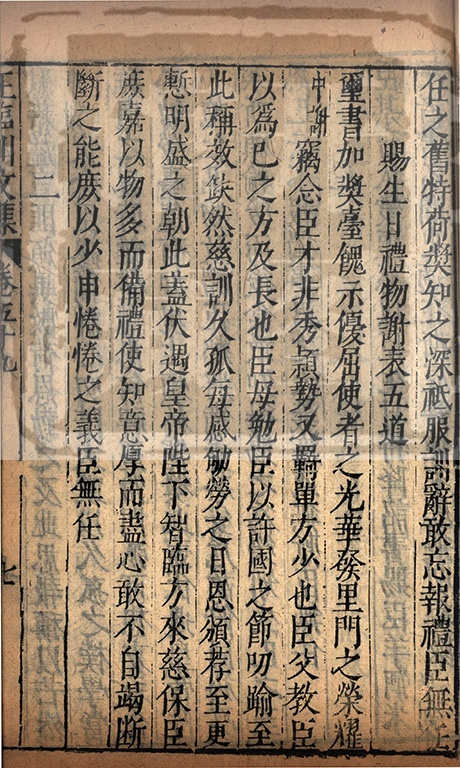 任之舊特荷獎知之深祗服訓辭敢忘報禮臣無任
賜生日禮物謝表五道
璽書加獎臺餽示優屈使者之光華發里門之榮耀
中謝竊念臣才非秀頴勢又羇單方少也臣父教臣
以為己之方及長也臣母勉臣以許國之節叨踰至
此稱效缺然慈訓久孤每感劬勞之日恩頒荐至更
慙明盛之朝此蓋伏遇皇帝陛下智臨方來慈保臣
庶嘉以物多而備禮使知意厚而盡心敢不自竭斷
斷之能庶以少申惓惓之義臣無任
二
王臨川文集 卷五十九 七